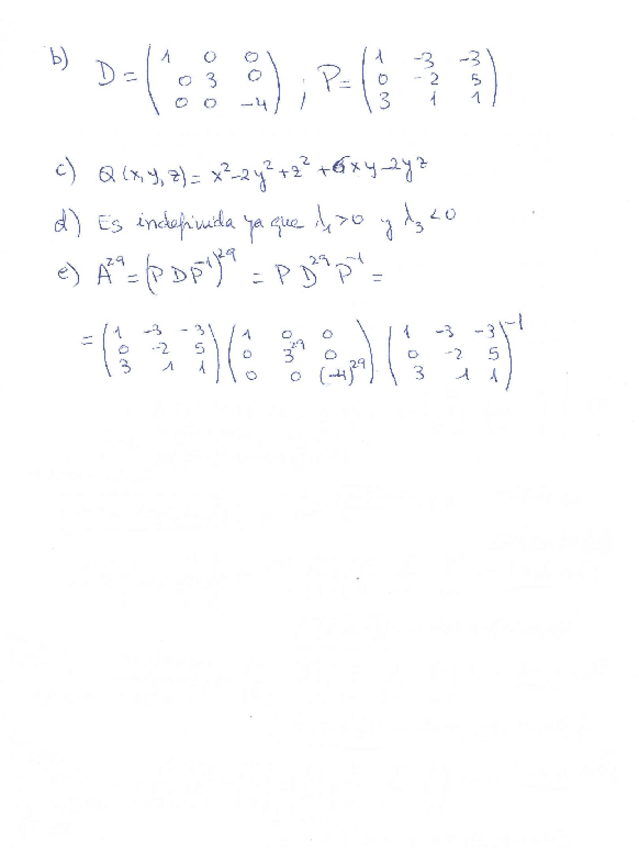 b) D = ( 1 0 0 ; 0 3 0 ; 0 0 -4 ) ; P = ( 1 -3 -3 ; 0 -2 5 ; 3 1 1 )
c) Q(x,y,z) = x² - 2y² + z² + 6xy - 2yz
d) Es indefinida ya que λ₁ > 0 y λ₃ < 0
e) A²⁹ = (P D P⁻¹)²⁹ = P D²⁹ P⁻¹ =
= ( 1 -3 -3 ; 0 -2 5 ; 3 1 1 ) ( 1 0 0 ; 0 3²⁹ 0 ; 0 0 (-4)²⁹ ) ( 1 -3 -3 ; 0 -2 5 ; 3 1 1 )⁻¹